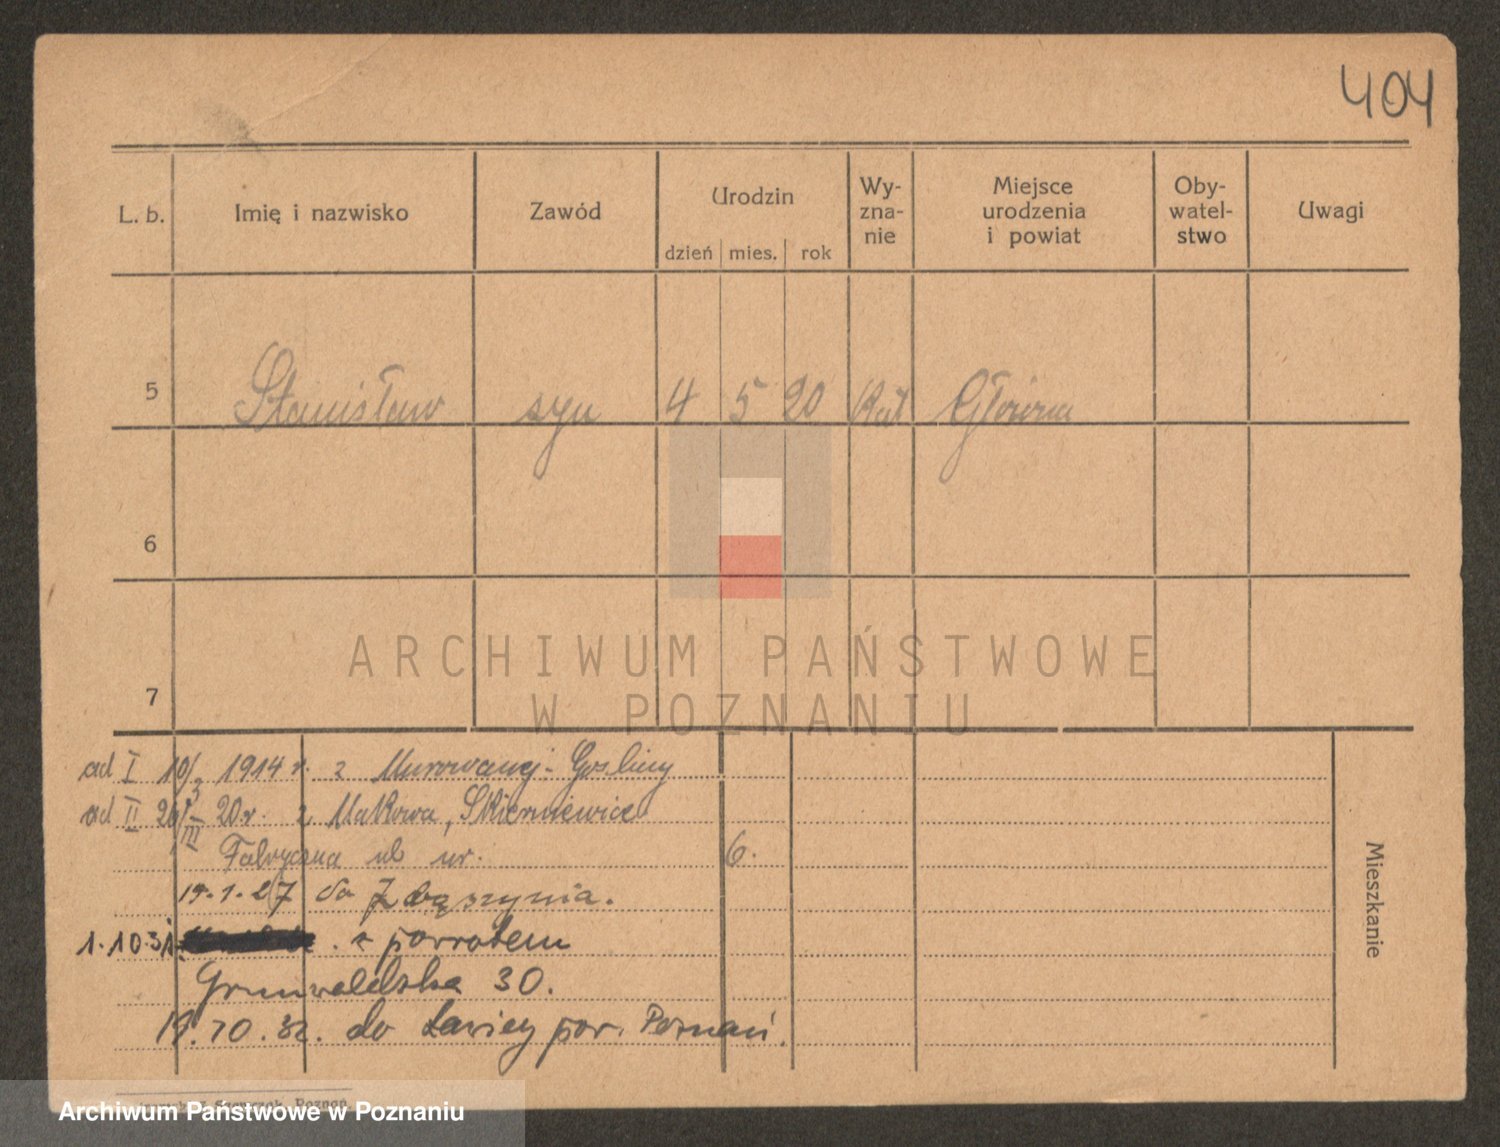 404
L. b. Imię i nazwisko Zawód Urodzin Wy-zna-nie Miejsce urodzenia i powiat Oby-watel-stwo Uwagi
dzień mies. rok
5 Stanisław syn 4 5 20 Kat Główna
6
7
ARCHIWUM PAŃSTWOWE
W POZNANIU
ad I 10/3 1914 r. z Murowanej-Gośliny
ad II 26/III 20 r. z Makowa, Skierniewice
Fabryczna ul nr. 6.
19.1.27 do Zbąszynia.
1.10.31. z powrotem
Grunwaldzka 30.
19.10.32. do Ławicy pow. Poznań.
Mieszkanie
Szewczak, Poznań
Archiwum Państwowe w Poznaniu